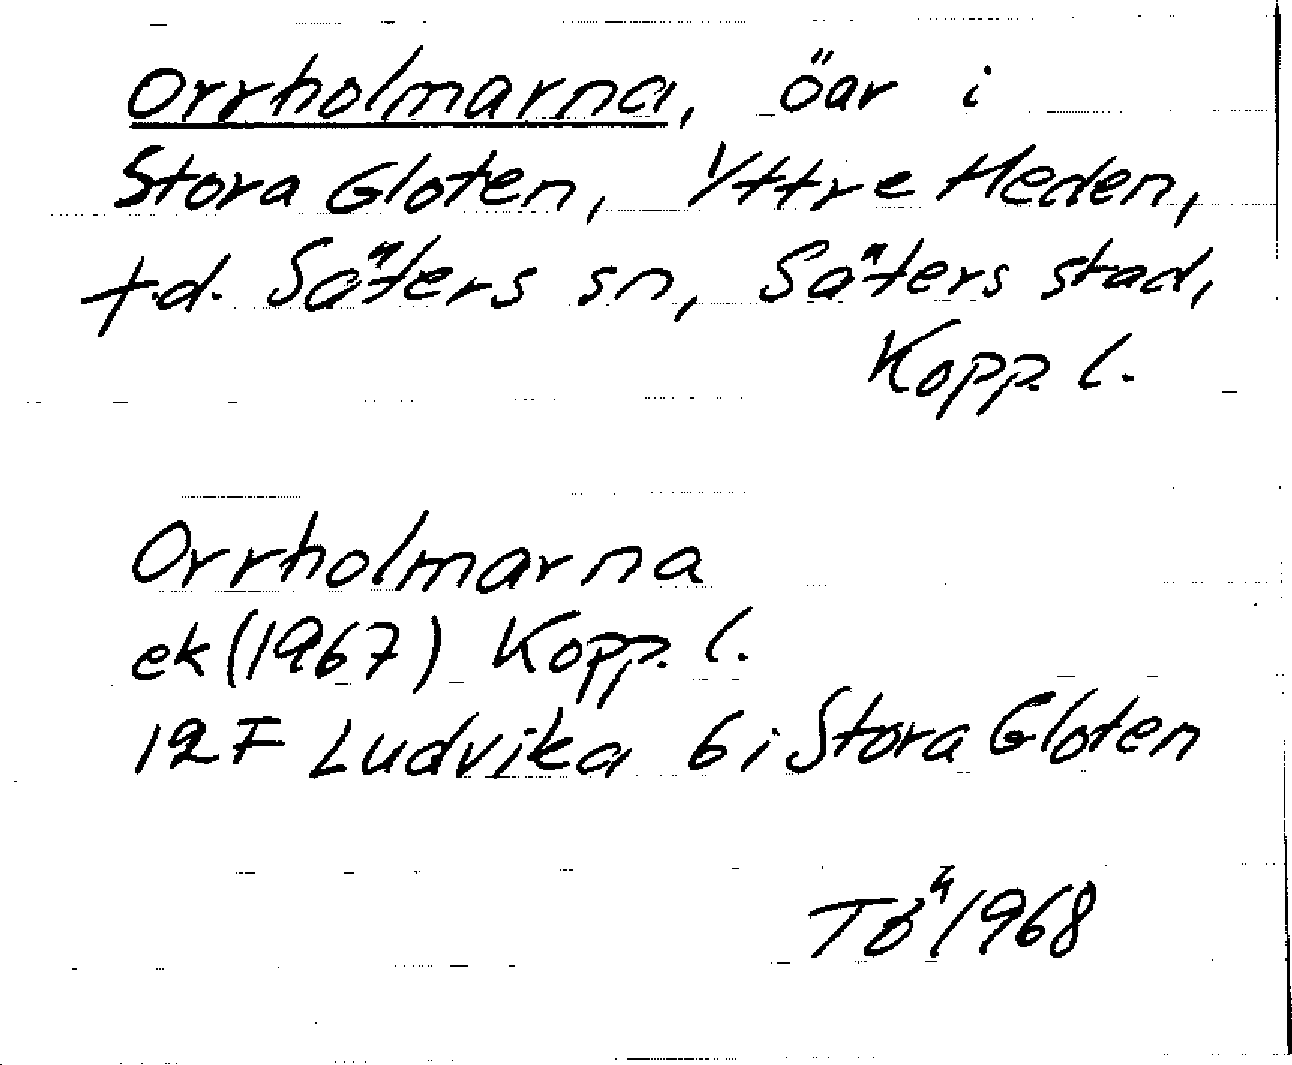 Orrholmarna, öar i
Stora Gloten, Yttre Heden,
f.d. Säters sn, Säters stad,
Kopp. l.
Orrholmarna
ek (1967) Kopp. l.
12F Ludvika 6 i Stora Gloten
1968